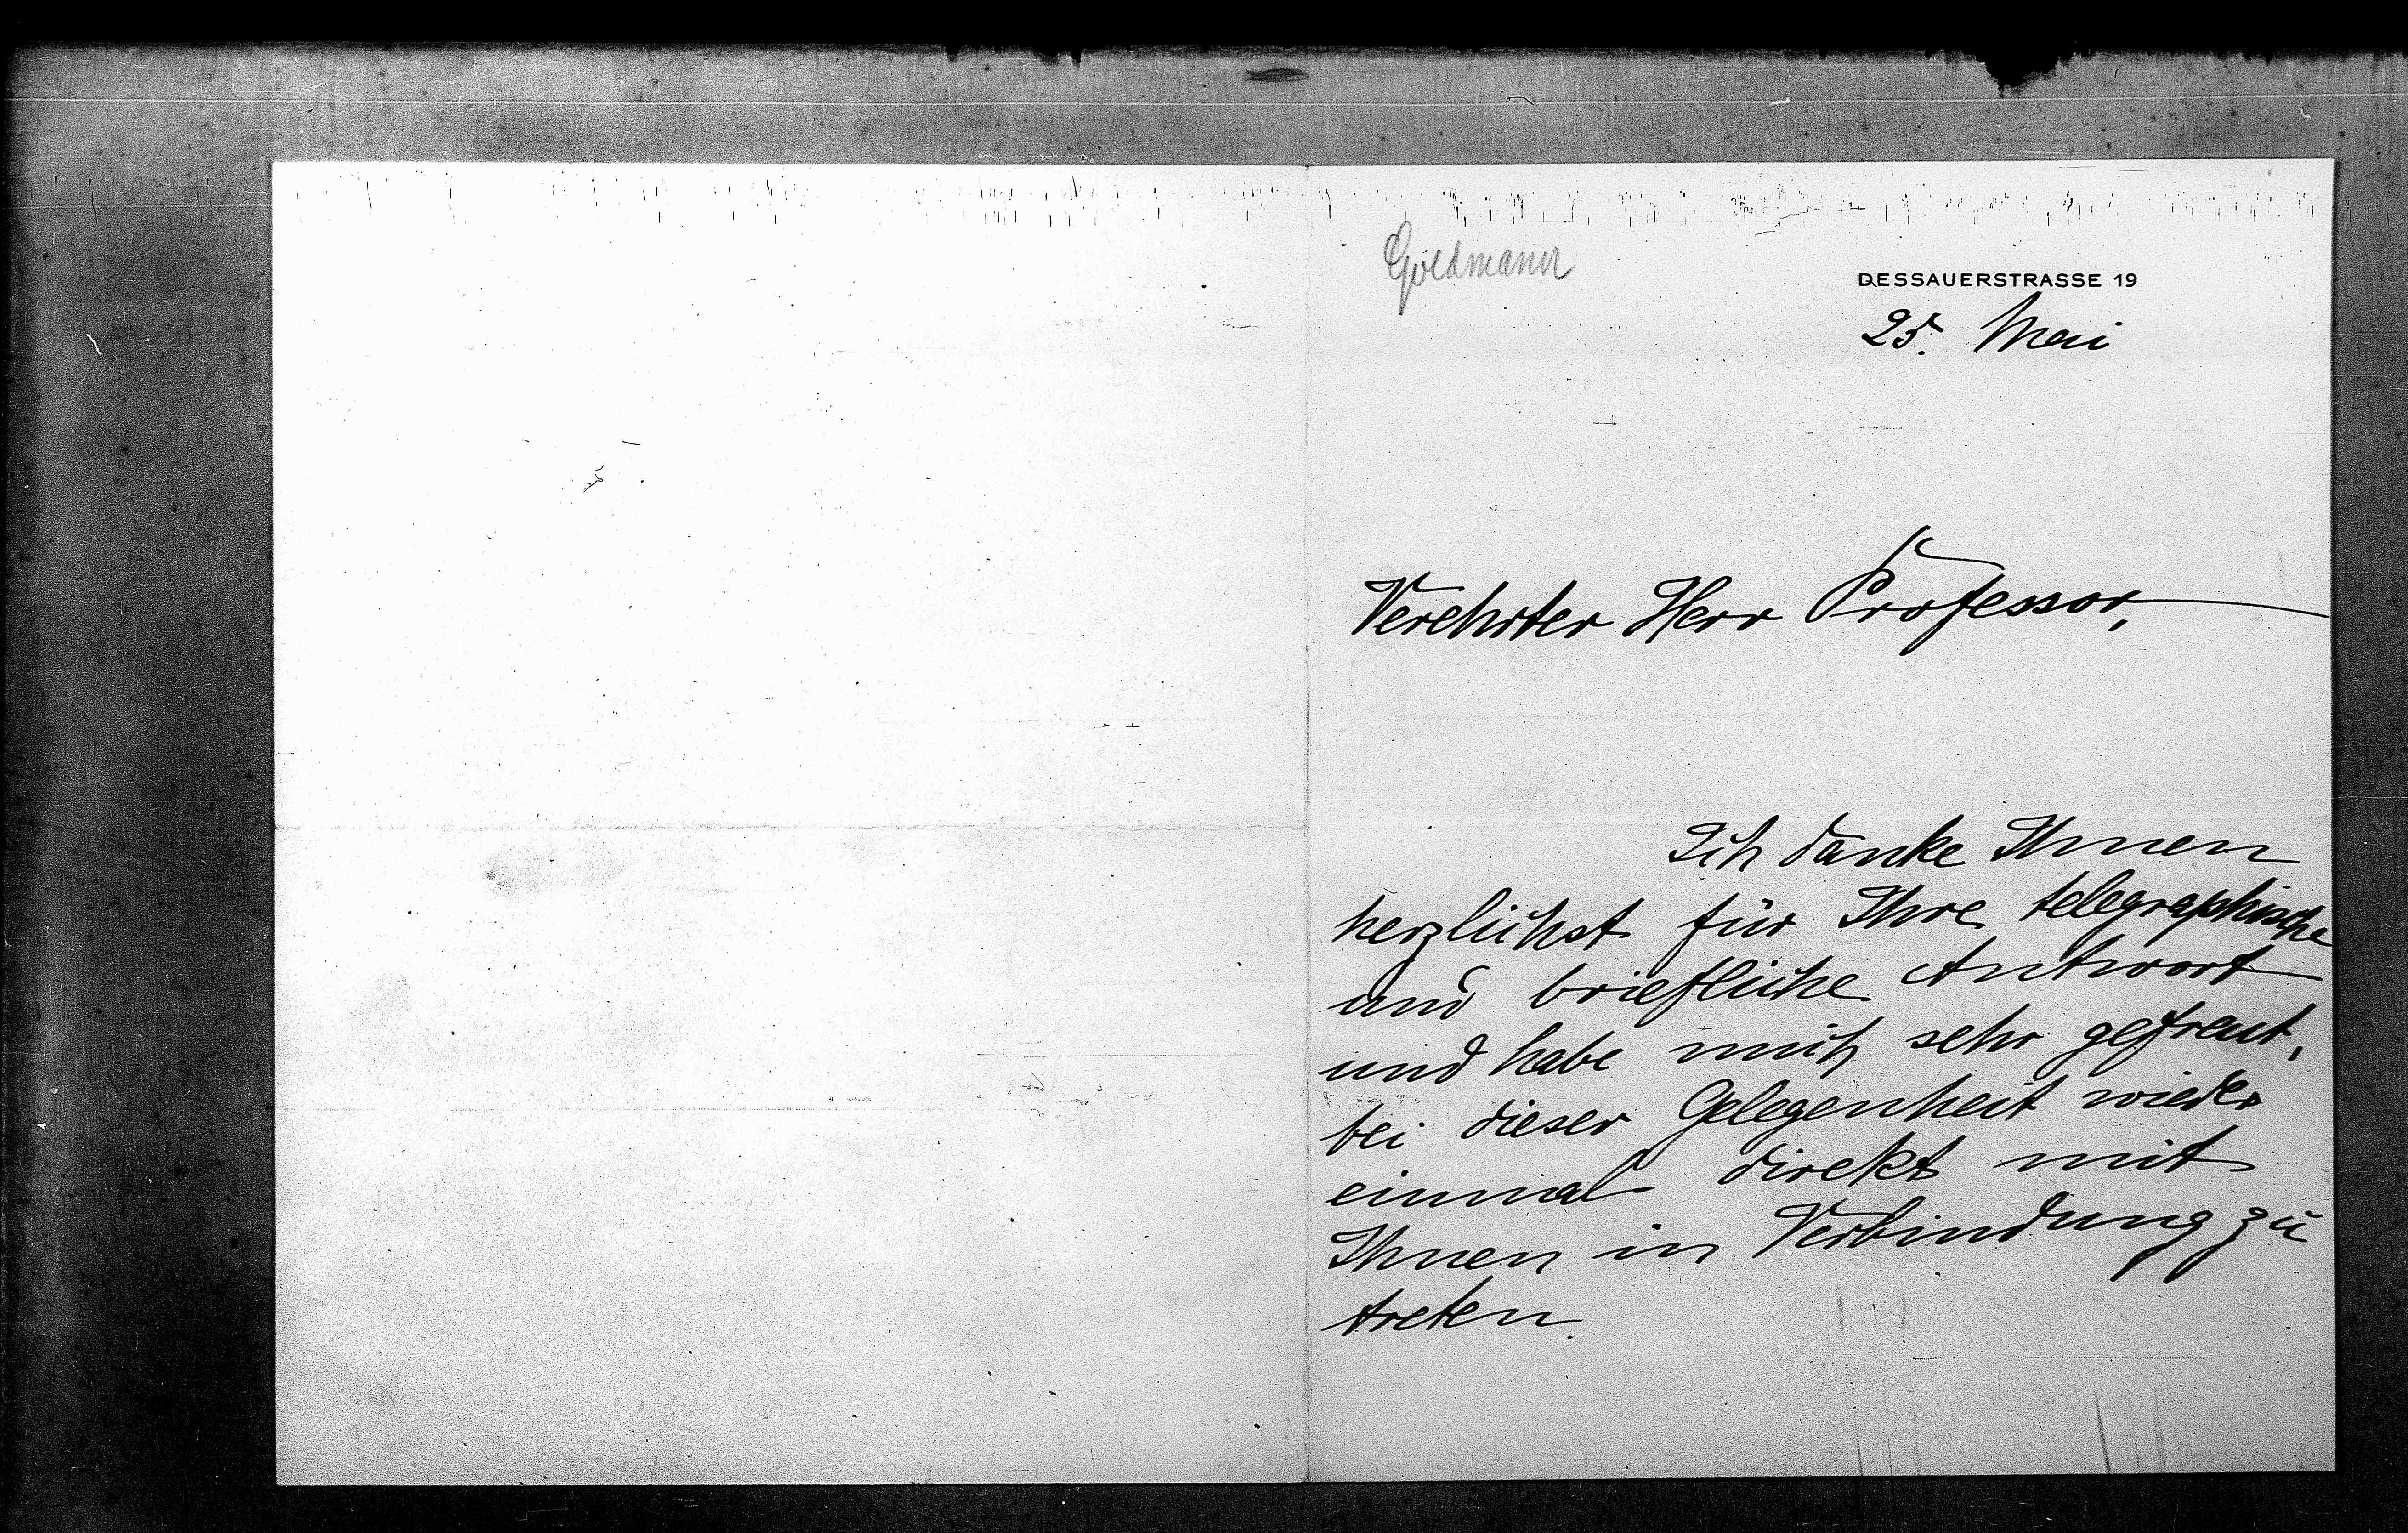 Goldmann
DESSAUERSTRASSE 19
25. Mai
Verehrter Herr Professor,
Ich danke Ihnen
herzlichst für Ihre telegraphische
und briefliche Antwort
und habe mich sehr gefreut,
bei dieser Gelegenheit wieder
einmal direkt mit
Ihnen in Verbindung zu
treten.